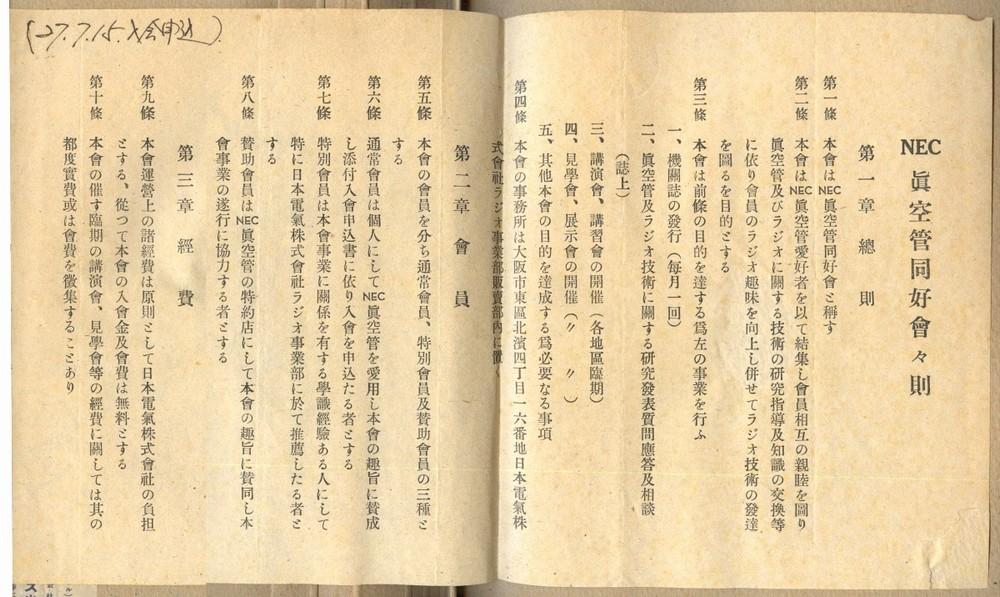 NEC 眞空管同好會々則
第一章 總則
第一條 本會はNEC眞空管同好會と稱す
第二條 本會はNEC眞空管愛好者を以て結集し會員相互の親睦を圖り
眞空管及びラジオに關する技術の研究指導及知識の交換等
に依り會員のラジオ趣味を向上し併せてラジオ技術の發達
を圖るを目的とする
第三條 本會は前條の目的を達する爲左の事業を行ふ
一、機關誌の發行(每月一回)
二、眞空管及ラジオ技術に關する研究發表質問應答及相談
(誌上)
三、講演會、講習會の開催(各地區臨期)
四、見學會、展示會の開催(〃 〃)
五、其他本會の目的を達成する爲必要なる事項
第四條 本會の事務所は大阪市東區北濱四丁目一六番地日本電氣株
式會社ラジオ事業部販賣部內に置く
第二章 會員
第五條 本會の會員を分ち通常會員、特別會員及賛助會員の三種と
する
第六條 通常會員は個人にしてNEC眞空管を愛用し本會の趣旨に賛成
し添付入會申込書に依り入會を申込たる者とする
第七條 特別會員は本會事業に關係を有する學識經驗ある人にして
特に日本電氣株式會社ラジオ事業部に於て推薦したる者と
する
第八條 賛助會員はNEC眞空管の特約店にして本會の趣旨に賛同し本
會事業の遂行に協力する者とする
第三章 經費
第九條 本會運營上の諸經費は原則として日本電氣株式會社の負担
とする、從つて本會の入會金及會費は無料とする
第十條 本會の催す臨期の講演會、見學會等の經費に關しては其の
都度實費或は會費を徵集することあり
(27.7.15.入会申込)